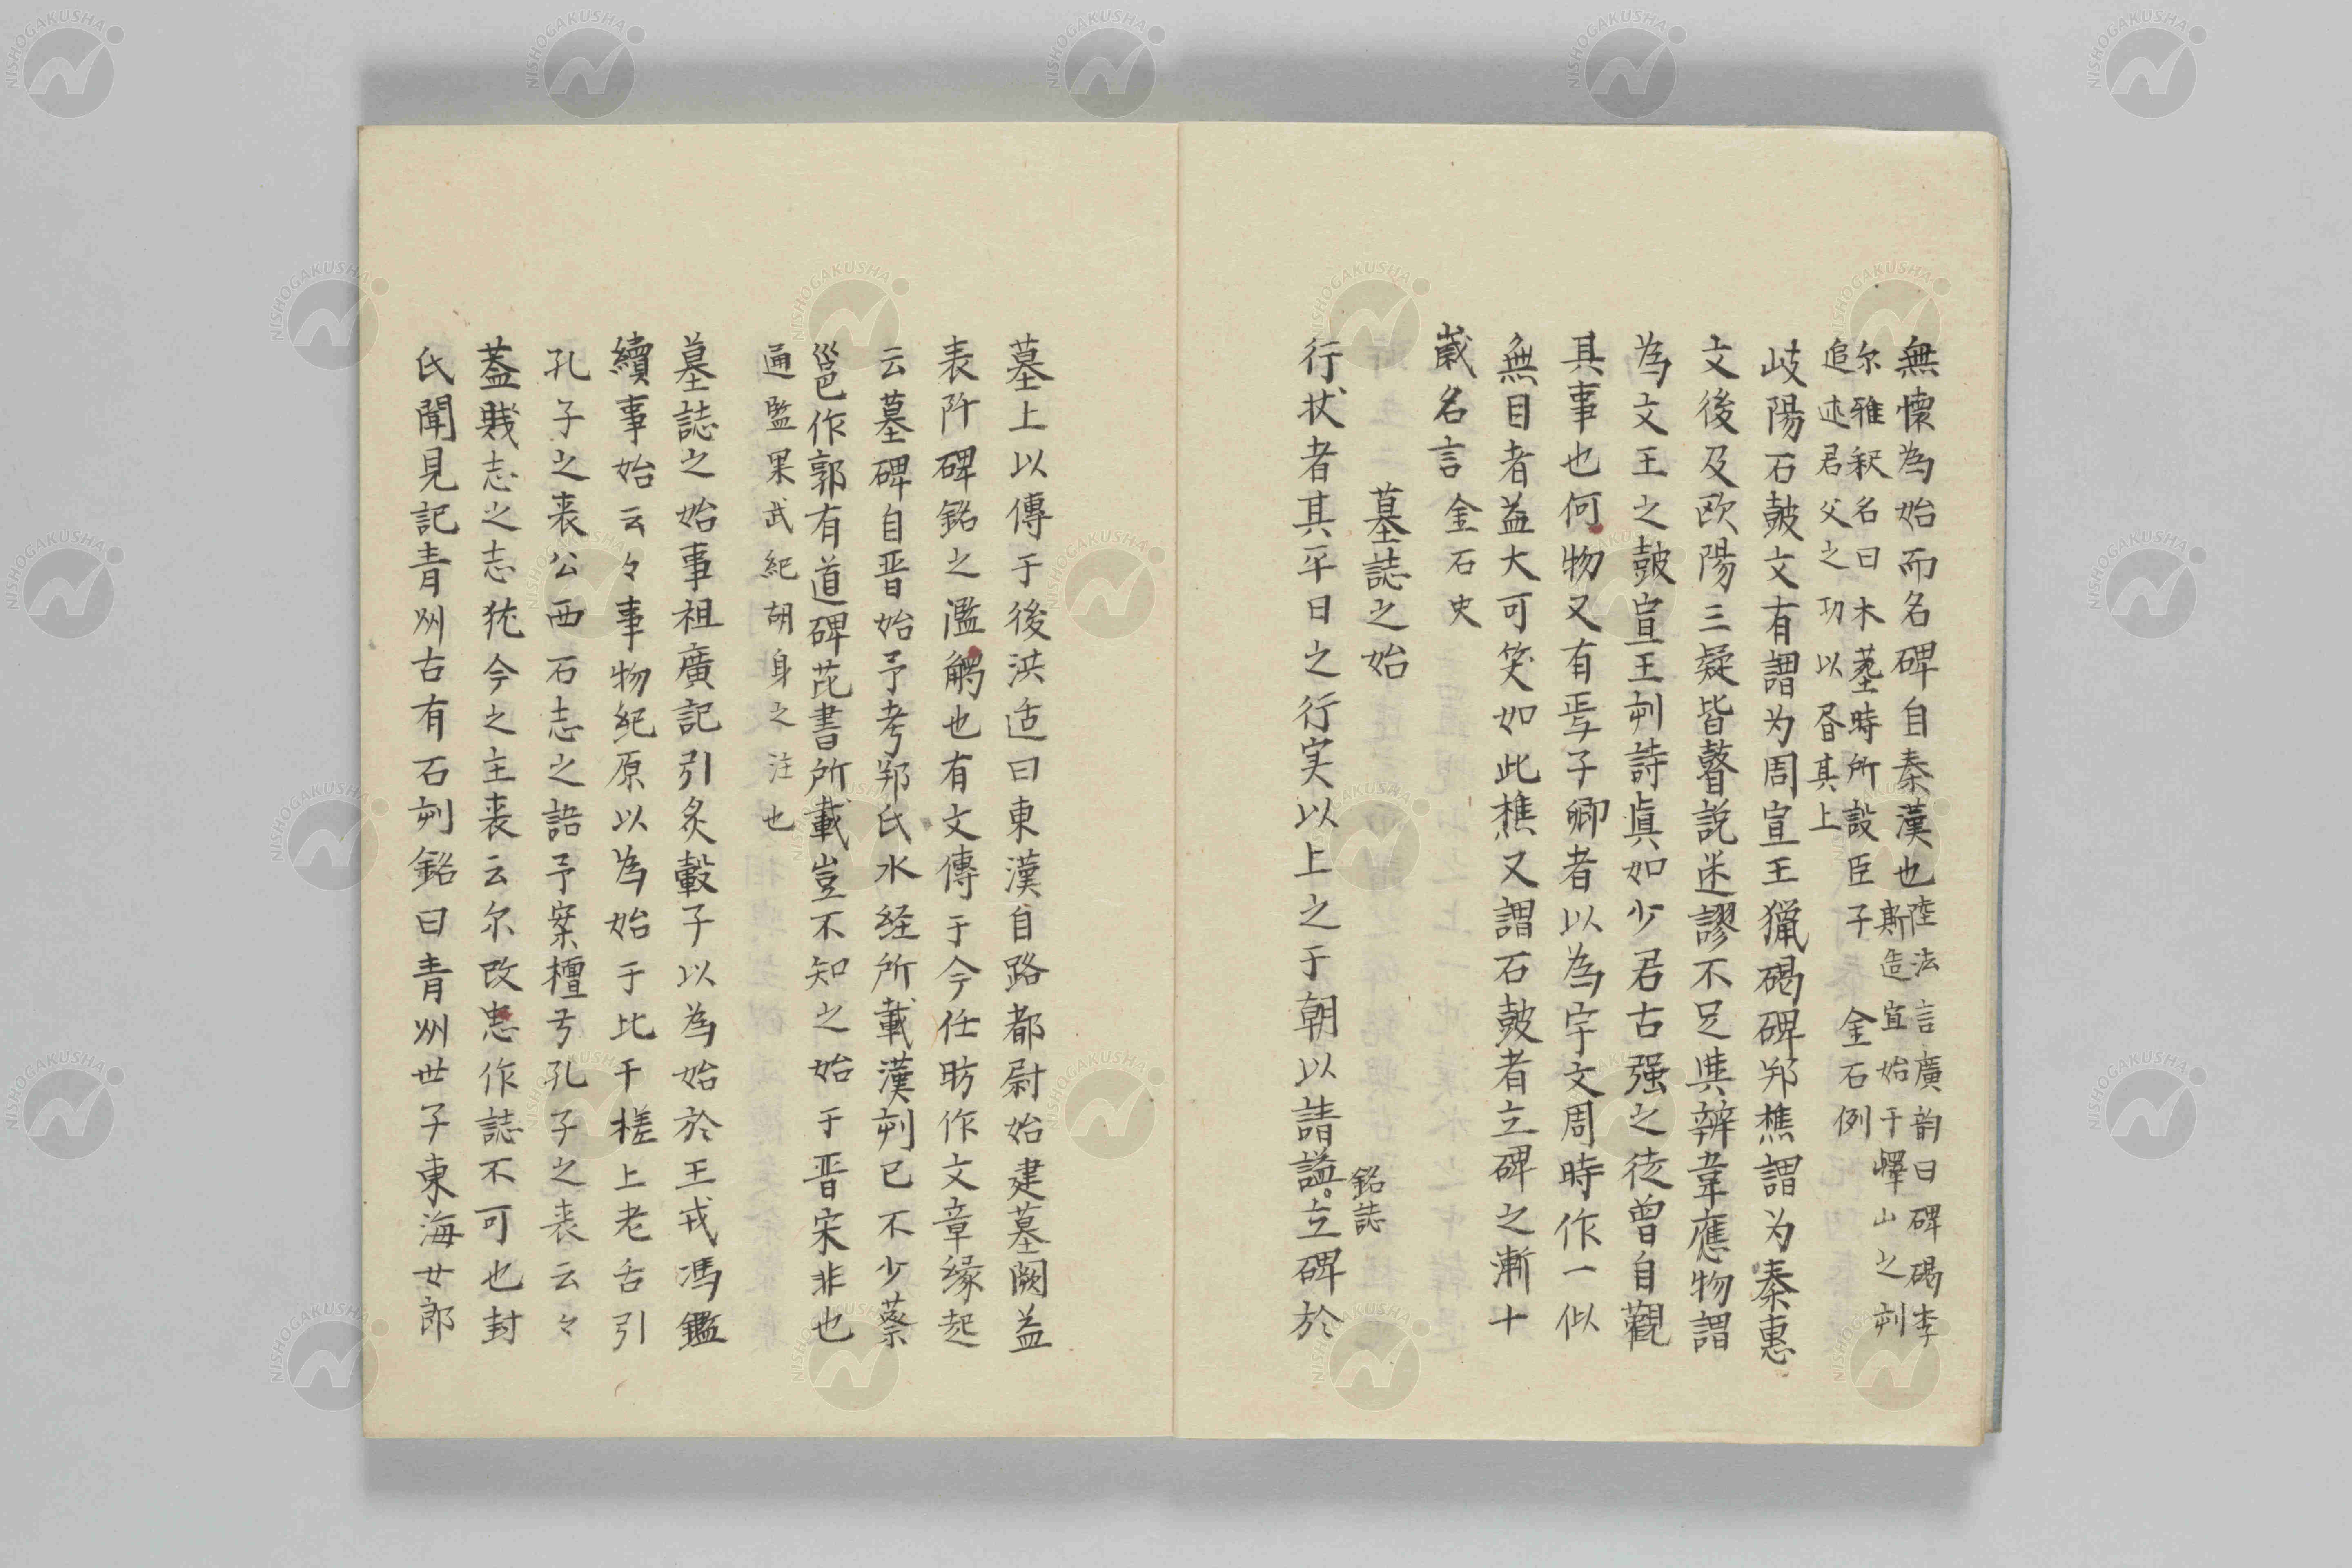 無懐為始而名碑自秦漢也陸法言廣韵曰碑碣李
斯造宜始于嶧山之刻
尓雅釈名曰木墓時所設臣子
追述君父之功以昏其上 金石例
岐陽石鼓文有謂为周宣王獵碣碑郑樵謂为秦惠
文後及欧陽三疑皆瞽説迷謬不足與辨韋應物謂
為文王之鼓宣王刻詩眞如少君古强之徒曽自觀
其事也何物又有焉子卿者以為宇文周時作一似
無目者益大可笑如此樵又謂石鼓者立碑之漸十
歳名言 金石史
墓誌之始
行状者其平日之行実以上之于朝以請謚立碑於
銘誌
墓上以傳于後洪适曰東漢自路都尉始建墓闕益
表阡碑銘之濫觴也有文傳于今任昉作文章縁起
云墓碑自晋始予考郑氏水経所載漢刻已不少蔡
邕作郭有道碑范書所載豈不知之始于晋宋非也
通監果武紀胡身之注也
墓誌之始事祖廣記引炙轂子以為始於王戎馮鑑
續事始云々事物紀原以為始于比干槎上老舌引
孔子之喪公西石志之語予案檀弓孔子之喪云々
蓋戝志之志犹今之主喪云尓改忠作誌不可也封
氏聞見記青州古有石刻銘曰青州世子東海女郎